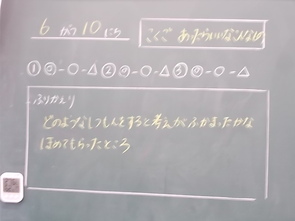 6がつ10にち
こくご あったらいいなこんなもの
①◎-○-△ ②◎-○-△ ③◎-○-△
ふりかえり
どのようなしつもんをすると考えがふかまったかな
ほめてもらったところ